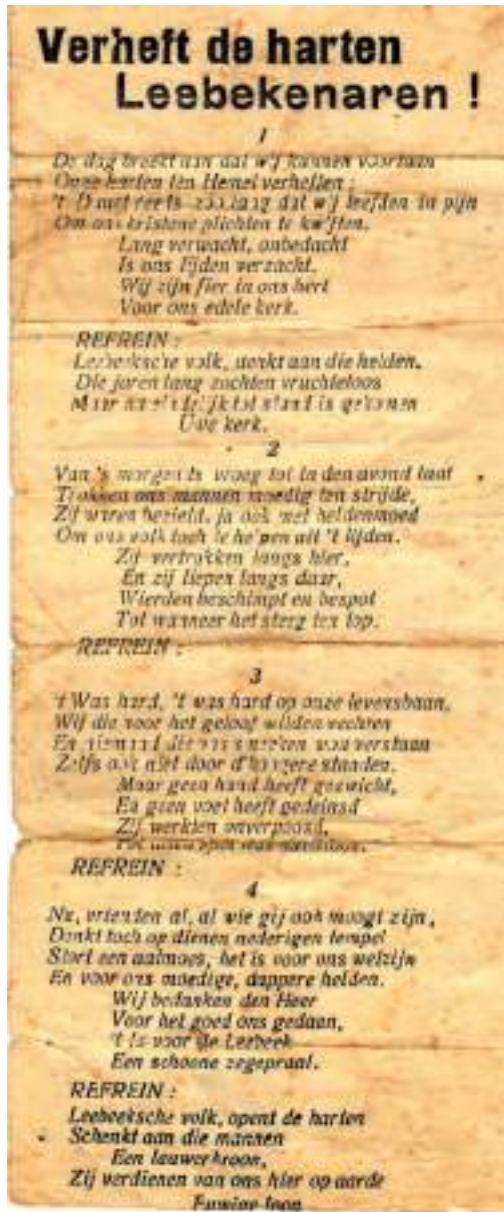 Verheft de harten
Leebekenaren !
1
De dag breekt aan dat wij kunnen voortaan
Onze harten ten Hemel verheffen ;
't D reeds zoolang dat wij leefden in pijn
Om ons kristene plichten te kwijten.
Lang verwacht, onbedacht
Is ons lijden verzacht.
Wij zijn fier in ons hert
Voor ons edele kerk.
REFREIN :
Leebeeksche volk, denkt aan die helden.
Die jaren lang zochten vruchteloos
Maar nu eindelijk tot stand is gekomen
Uwe kerk.
2
Van 's morgens vroeg tot in den avond laat
Trokken ons mannen moedig ten strijde,
Zij waren bezield, ja ook met heldenmoed
Om ons volk toch te helpen uit 't lijden.
Zij vertrokken langs hier,
En zij liepen langs daar,
Wierden beschimpt en bespot
Tot wanneer het steeg ten top.
REFREIN :
3
't Was hard, 't was hard op onze levensbaan,
Wij die voor het geloof wilden vechten
En niemand die ons verstaan
Zelfs ook niet door d'hoogere standen.
Maar geen hand heeft gezwicht,
En geen voet heeft gedeinsd
Zij werkten onverpoosd,
REFREIN :
4
Nu, vrienden al, al wie gij ook moogt zijn,
Denkt toch op dienen nederigen tempel
Stort een aalmoes, het is voor ons welzijn
En voor ons moedige, dappere helden.
Wij bedanken den Heer
Voor het goed ons gedaan,
't Is voor de Leebeek
Een schoone zegepraal.
REFREIN :
Leebeeksche volk, opent de harten
Schenkt aan die mannen
Een lauwerkroon,
Zij verdienen van ons hier op aarde
Eeuwige loon